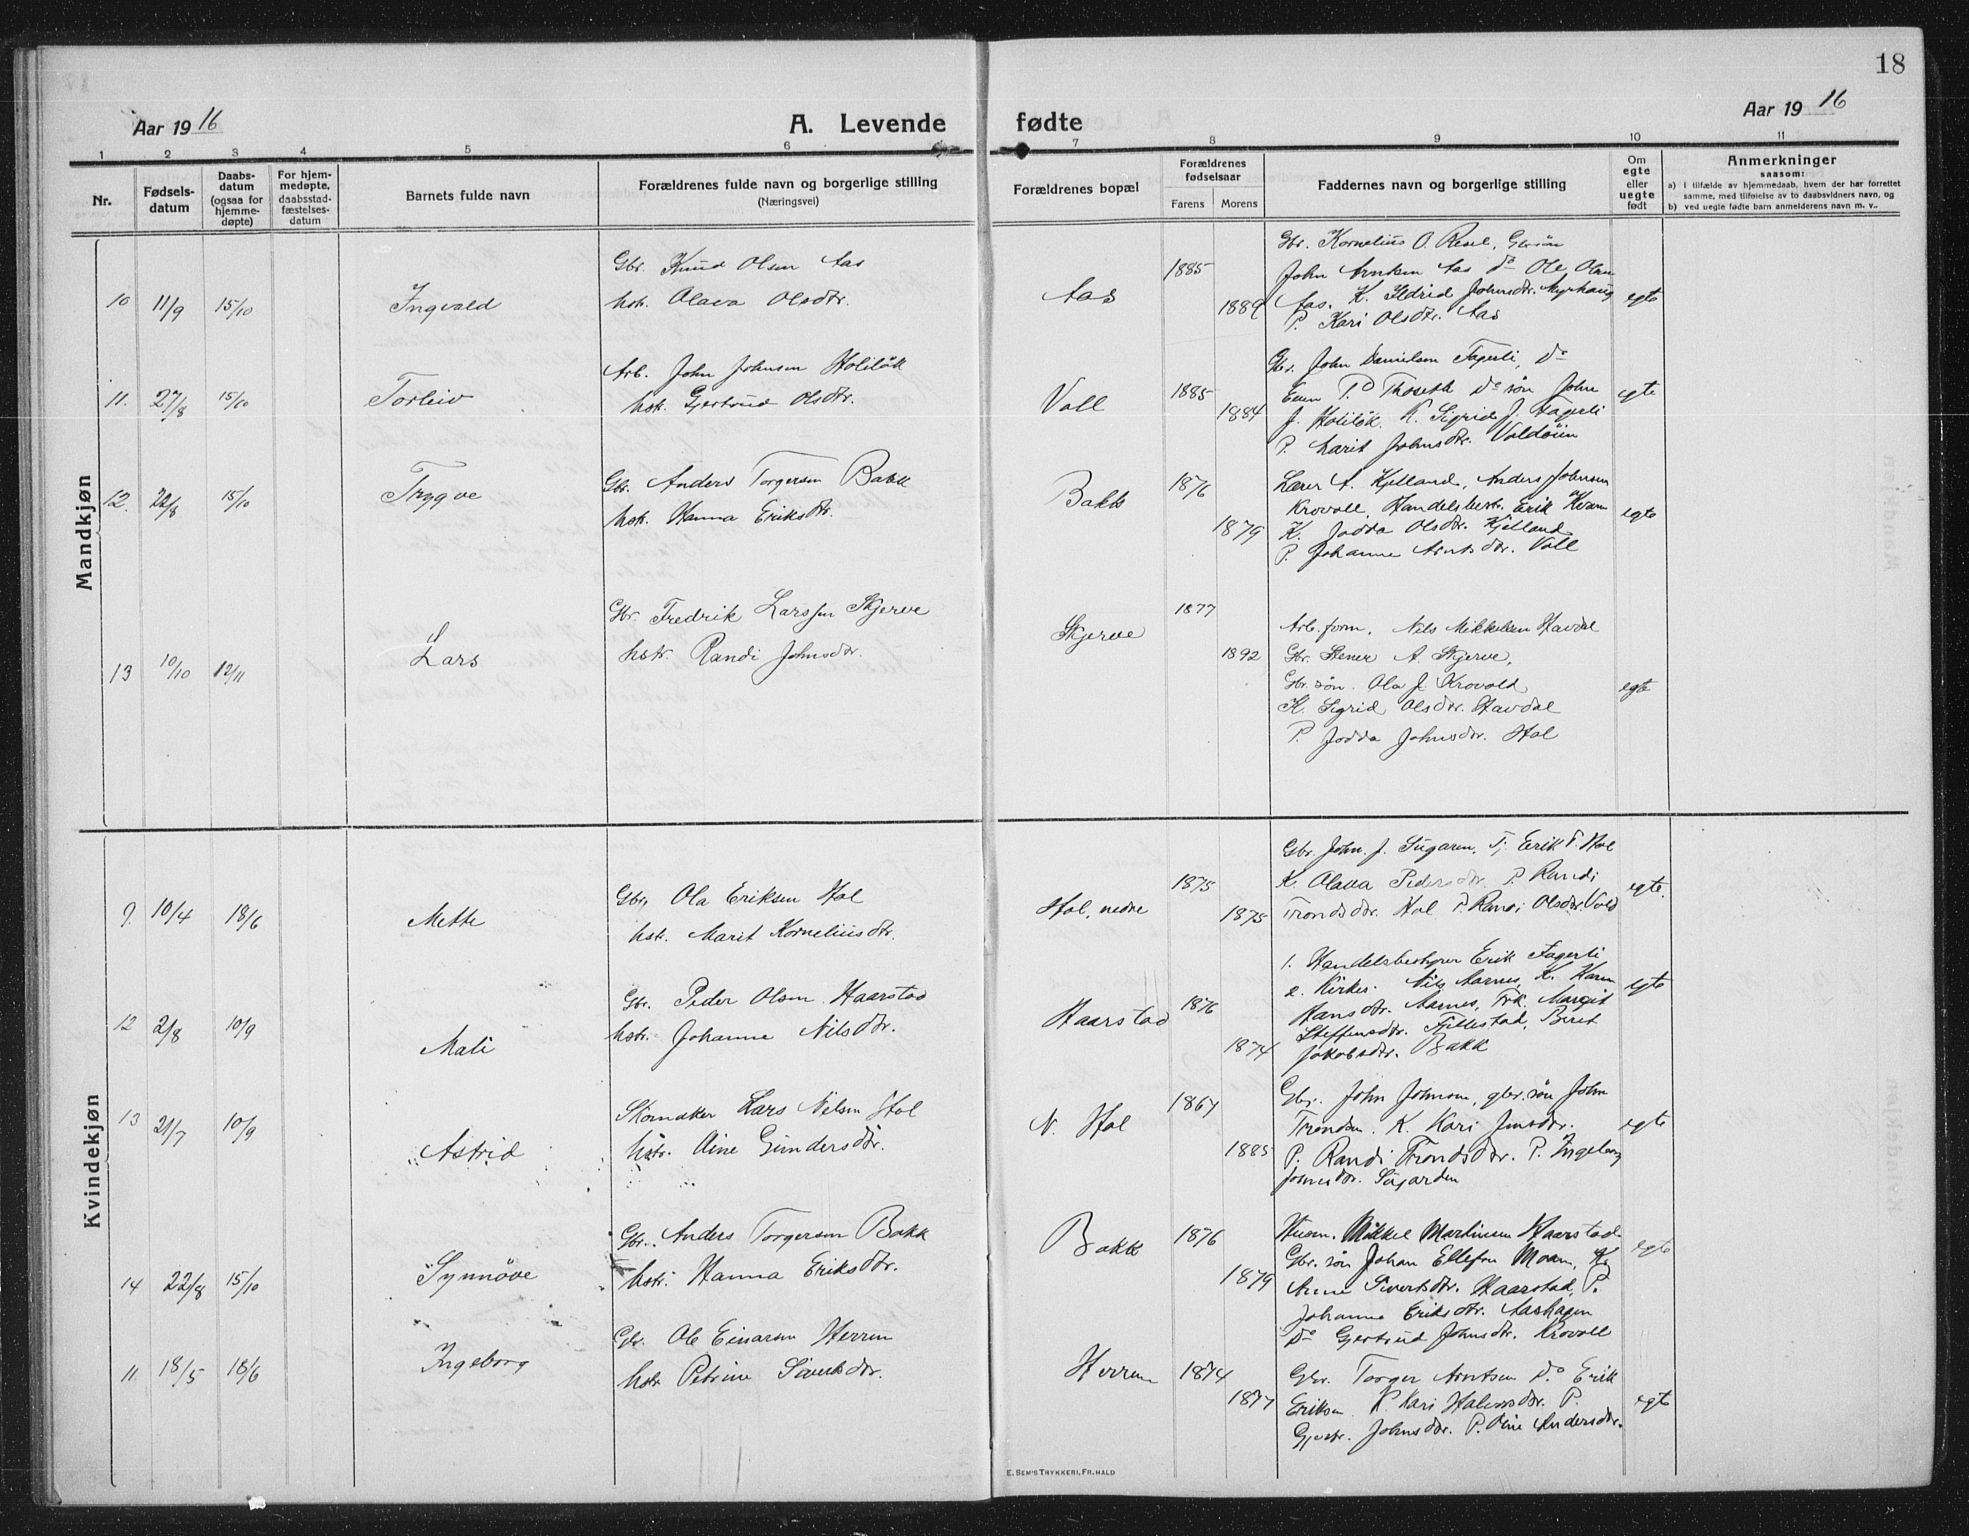 18
Aar 1916
A. Levende fødte
Aar 1916
1 2 3 4 5 6 7 8 9 10 11
Nr.
Fødsels-
datum
Daabs-
datum
(ogsaa for
hjemme-
døpte)
For hjem-
medøpte,
daabsstad-
fæstelses-
datum
Barnets fulde navn
Forældrenes fulde navn og borgerlige stilling
(Næringsvei)
Forældrenes bopæl
Forældrenes
fødselsaar
Farens Morens
Faddernes navn og borgerlige stilling
Om
egte
eller
uegte
født
Anmerkninger
saasom:
a) i tilfælde av hjemmedaab, hvem der har forrettet
samme, med tilføielse av to daabsvidners navn, og
b) ved uegte fødte barn anmelderens navn m. v..
Mandkjøn
10 11/9 15/10 Ingvald
Gbr. Knud Olsen Aas
hstr. Olava Olsdtr.
Aas 1885 1889
Gbr. Kornelius O. Resel, Gbrsøn
John Arntsen Aas do Ole Olsen
Aas. K. Ildrid Johnsdtr. Myrhaug
P. Kari Olsdtr. Aas
egte
11. 27/8 15/10 Torleiv
Arb. John Johnsen Holiløk
hstr. Gjertrud Olsdtr.
Voll 1885 1884
Gbr. John Danielsen Fagerli, do
Even P. Throseth do søn John
J. Holiløk. K. Sigrid J. Fagerli
P. Marit Johnsdtr. Voldøien
egte
12. 22/8 15/10 Trygve
Gbr. Anders Torgersen Bakk
hstr. Hanna Eriksdtr.
Bakk 1876 1879
Lærer A. Kjelland, Anders Johnsen
Krovoll, Handelsbest. Erik Kvam
K. Jodda Olsdtr. Kjelland
P. Johanne Arntsdtr. Voll
egte
13 10/10 12/11 Lars
Gbr. Fredrik Larssen Skjerve
hstr. Randi Johnsdtr.
Skjerve 1877 1892
Arb.form. Nils Mikkelsen Havdal
Gbr. Stener A. Skjerve,
Gbr. søn. Ola J. Krovold
K. Sigrid Olsdtr. Havdal
P. Jodda Johnsdtr. Hol
egte
Kvindekjøn
9. 10/4 18/6 Mette
Gbr. Ola Eriksen Hol
hstr. Marit Korneliusdtr.
Hol, nedre 1875 1875
Gbr. John J. Sugaren, Tj. Erik T. Hol
K. Olava Pedersdtr. P. Randi
Trondsdtr. Hol P. Randi Olsdtr. Vold
egte.
12 2/8 10/9 Mali
Gbr. Peder Olsen Haarstad
hstr. Johanne Nilsdtr.
Haarstad 1876 1874
1. Handelsbestyrer Erik Fagerli
2. Kirkes. Nils Aarnes, K. Karen
Hansdtr. Aarnes, Frk. Margit
Steffensdtr. Fjellestad, Beret
Jakobsdtr. Bakk
egte
13 21/7 10/9 Astrid
Skomaker Lars Nilsen Hol
hstr. Oline Gundersdtr.
N. Hol 1867 1885
Gbr. John Johnsen, gbr.søn John
Trondsen. K. Kari Jensdtr.
P. Randi Trondsdtr. P. Ingeborg
Johnsdtr. Sugarden
egte
14 22/8 15/10 Synnøve
Gbr. Anders Torgersen Bakk
hstr. Hanna Eriksdtr.
Bakk 1876 1879
Husm. Mikkel Martinsen Haarstad
Gbr. søn Johan Ellefsen Moan, K.
Anne Sivertsdtr. Haarstad, P.
Johanne Eriksdtr. Aashagen
do Gjertrud Johnsdtr. Krovoll
egte
11 18/5 18/6 Ingeborg
Gbr. Ole Einarsen Herrem
hstr. Petrine Sivertsdtr.
Herrem 1874 1877
Gbr. Torger Arntsen do Erik
Eriksen K. Kari Halvorsdtr. P.
Gjertr. Johnsdtr. P. Oline Andersdtr.
egte
E. Sem's Trykkeri, Fr.hald